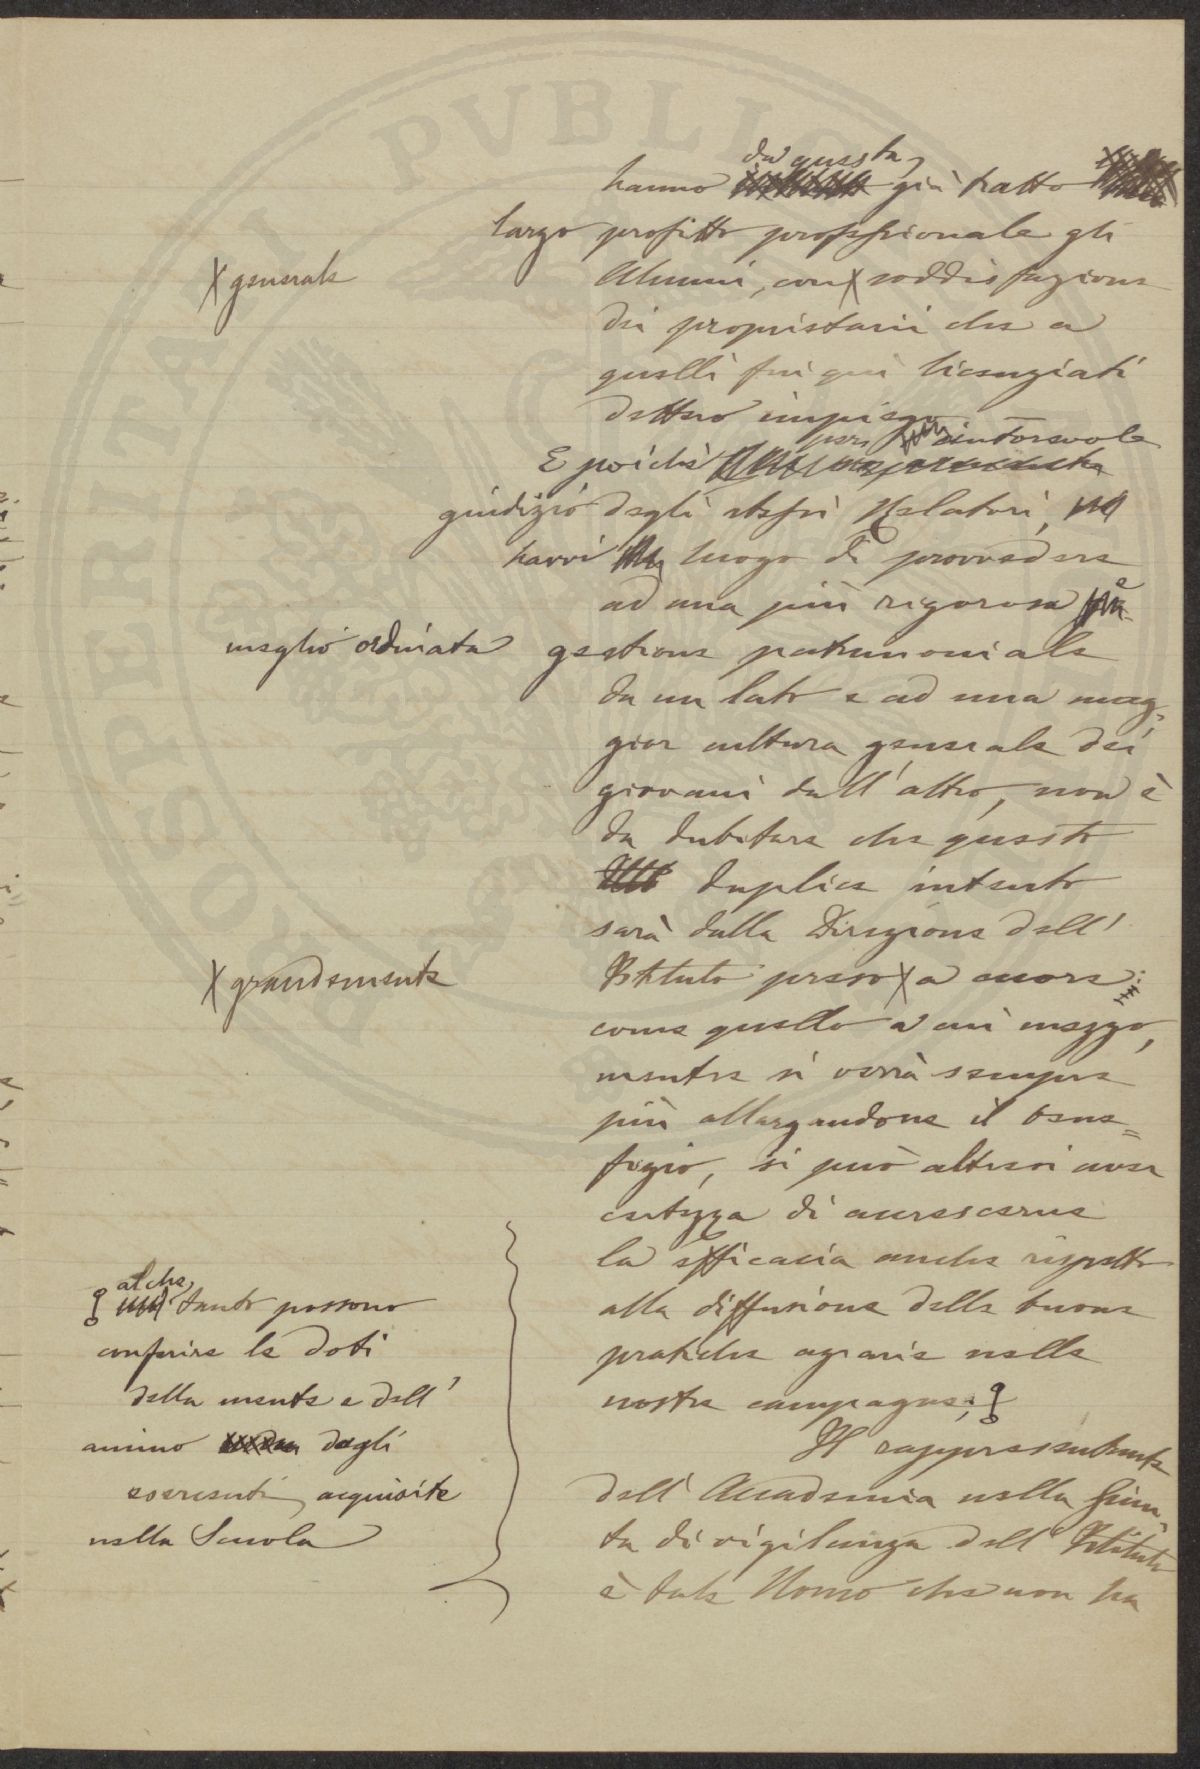 hanno da questa già tratto
largo profitto professionale gli
X generale
Alunni, con X soddisfazione
dei proprietarii che a
quelli fin qui licenziati
dettero impiego
E poichè per autorevole
giudizio degli stessi Relatori,
havvi luogo di provvedere
ad una più rigorosa e
meglio ordinata gestione patrimoniale
da un lato e ad una mag-
gior cultura generale dei
giovani dall'altro, non è
da dubitare che questo
duplice intento
sarà dalla Direzione dell'
Istituto preso X a cuore:
X grandemente
come quello a cui mezzo,
mentre si verrà sempre
più allargandone il bene=
fizio, si può altresì aver
certezza di accrescerne
la efficacia anche rispetto
alla diffusione delle buone
pratiche agrarie nelle
nostre campagne;
al che tanto possono
conferire le doti
della mente e dell'
animo degli
esercenti, acquisite
nella Scuola
Il rappresentante
dell'Accademia nella Giun-
ta di vigilanza dell'Istituto
è tale Uomo che non ha
PROSPERITATI PVBLICAE AVGENDAE